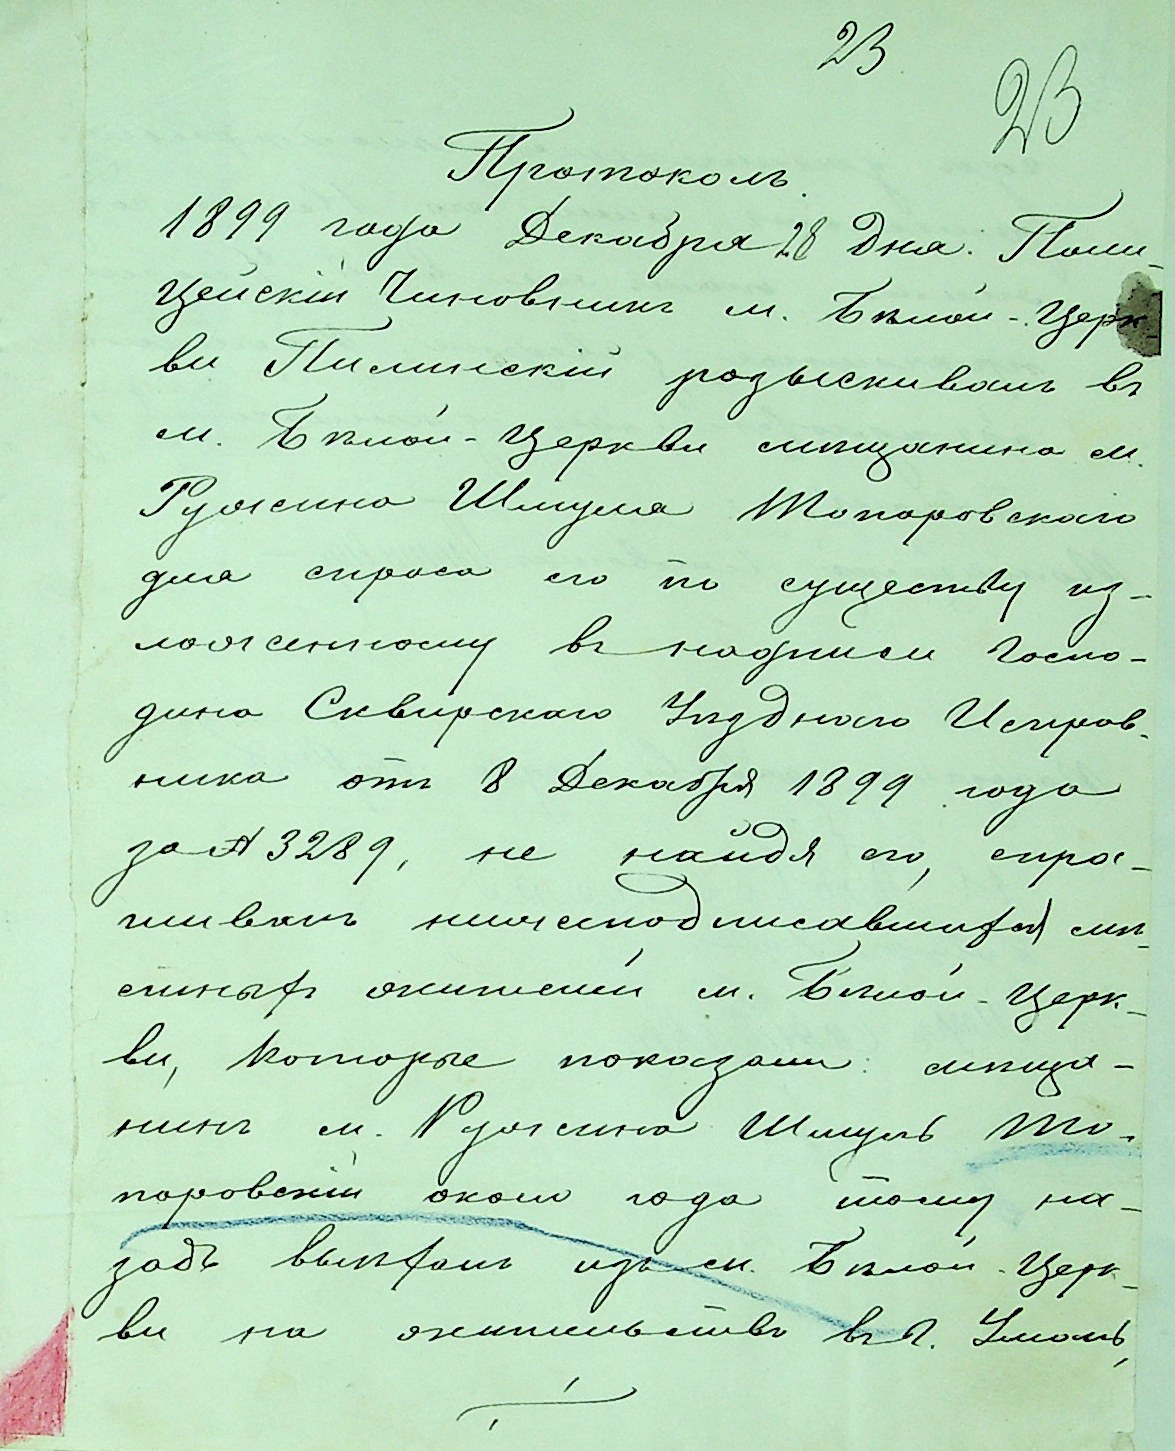 23
23
Протоколъ.
1899 года Декабря 28 дня. Поли-
цейскій Чиновникъ м. Бѣлой-Церк
ви Пилинскій розыскивалъ въ
м. Бѣлой-Церкви мѣщанина м.
Ружина Шмуля Топоровскаго
для спроса его по существу из-
ложенному въ надписи Госпо-
дина Сквирскаго Уѣзднаго Исправ-
ника отъ 8 Декабря 1899 года
за № 3289, не найдя его, спра-
шивалъ нижеподписавшихся мѣ-
стныхъ жителей м. Бѣлой-Церк-
ви, которые показали: мѣща-
нинъ м. Ружина Шмуль То-
поровскій около года тому на-
задъ выѣхалъ изъ м. Бѣлой-Церк-
ви на жительство въ г. Умань,